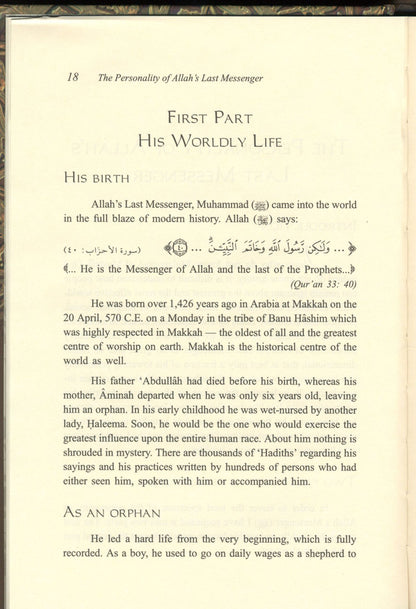 18 The Personality of Allah's Last Messenger
FIRST PART
HIS WORLDLY LIFE
HIS BIRTH
Allah's Last Messenger, Muhammad (ﷺ) came into the world
in the full blaze of modern history. Allah (ﷻ) says:
﴿... وَلَٰكِن رَّسُولَ اللَّهِ وَخَاتَمَ النَّبِيِّينَ ... ﴿٤٠﴾﴾ (سورة الأحزاب: ٤٠)
﴾... He is the Messenger of Allah and the last of the Prophets...﴿
(Qur'an 33: 40)
He was born over 1,426 years ago in Arabia at Makkah on the
20 April, 570 C.E. on a Monday in the tribe of Banu Hâshim which
was highly respected in Makkah — the oldest of all and the greatest
centre of worship on earth. Makkah is the historical centre of the
world as well.
His father ‘Abdullâh had died before his birth, whereas his
mother, Âminah departed when he was only six years old, leaving
him an orphan. In his early childhood he was wet-nursed by another
lady, Ḥaleema. Soon, he would be the one who would exercise the
greatest influence upon the entire human race. About him nothing is
shrouded in mystery. There are thousands of ‘Hadiths’ regarding his
sayings and his practices written by hundreds of persons who had
either seen him, spoken with him or accompanied him.
AS AN ORPHAN
He led a hard life from the very beginning, which is fully
recorded. As a boy, he used to go on daily wages as a shepherd to